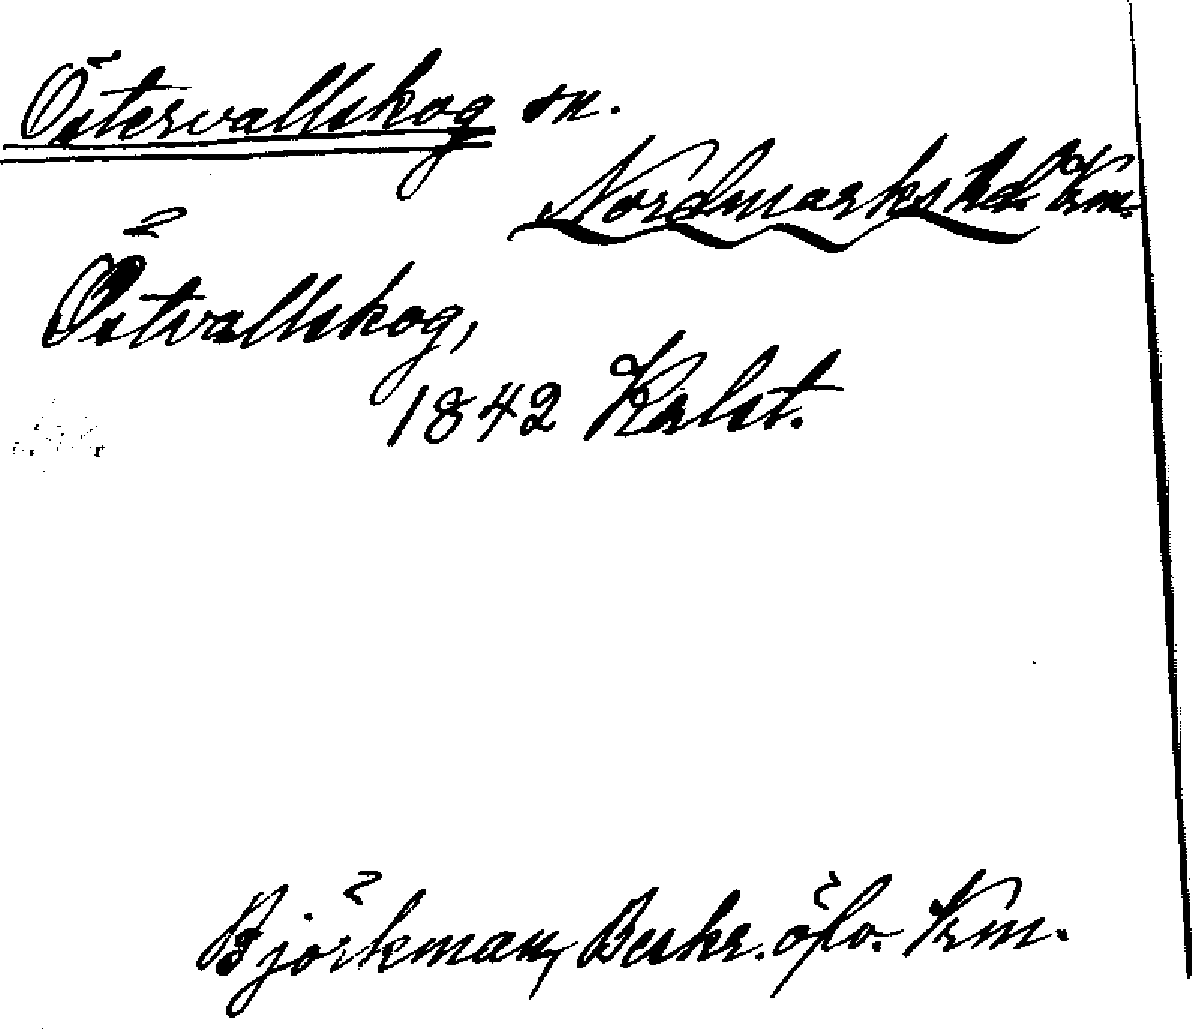 Östervallskog sn.
Nordmarks hd. Vrm.
Östvallskog,
1842 Kalst.
Björkman, Beskr. öfv. Vrm.